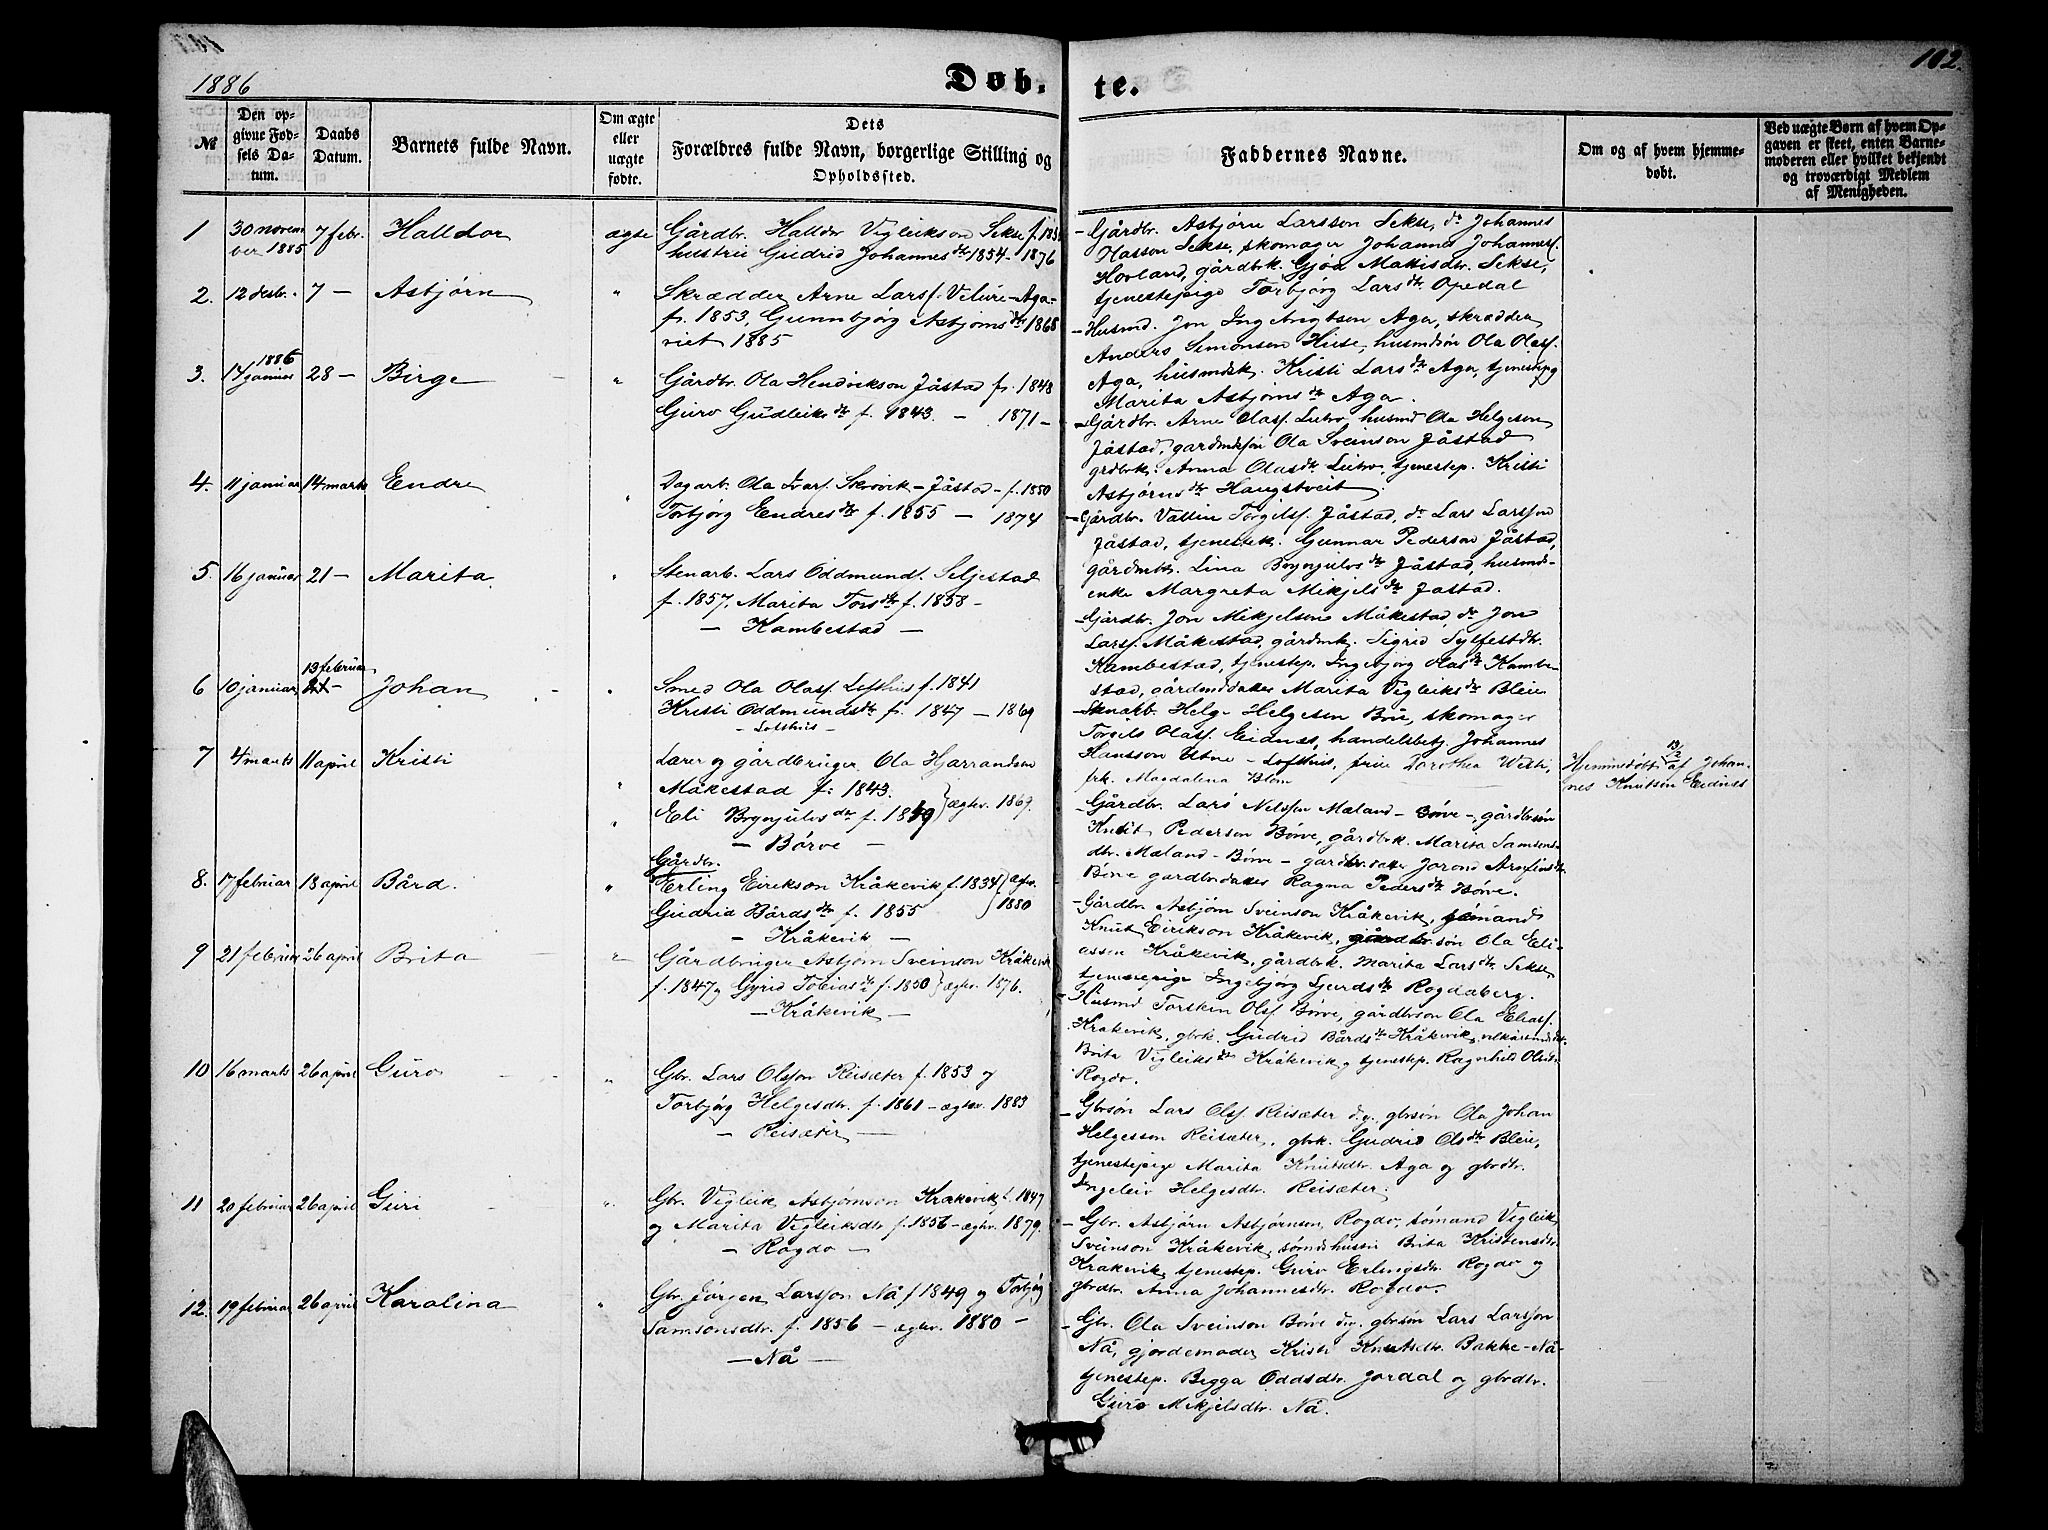 1886
Døb-
te.
102.
№
Den op-
givne Fød-
sels Da-
tum.
Daabs
Datum.
Barnets fulde Navn.
Om ægte
eller
uægte
fødte.
Dets
Forældres fulde Navn, borgerlige Stilling og
Opholdssted.
Faddernes Navne.
Om og af hvem hjemme-
døbt.
Ved uægte Børn af hvem Op-
gaven er skeet, enten Barne-
moderen eller hvilket bekjendt
og troværdigt Medlem
af Menigheden.
1
30 novem
ber 1885
7 febr.
Halldor
ægte
Gårdbr. Halldor Vigleikson Sekse
hustru Gudrid Johannesdtr 1854 - 1876
Gårdbr. Asbjørn Larsson Sekse, do Johannes
Olasson Sekse, skomager Johannes Johannesf.
Hovland, gårdbrk. Sekse,
tjenestepige Torbjørg Larsdtr Opedal
2.
12 desbr.
7 -
Asbjørn
"
Skrædder Arne Larsf. Velure - Aga -
f. 1853, Gunnbjørg Asbjørnsdtr 1868
viet 1885
- Husmd. Jon Aga, skrædder
Anders Simonsen Huse, husmdsøn Ola Olasf.
Aga, husmdsk. Kristi Larsdtr Aga, tjenestepg
Marita Asbjørnsdtr Aga.
3.
1886
14 januar
28 -
Birge
"
Gårdbr. Ola Hendrikson Jåstad f. 1848
Guro Gudleiksdtr f. 1843. - 1871 -
- Gårdbr. Arne Olasf. Lutro husmd Ola Helgesen
Jåstad, Ola Sveinson Jåstad
Anna Olasdtr Lutro, tjenestep. Kristi
Asbjørnsdtr Haugstveit.
4.
11 januar
14 marts
Endre
"
Dagarb. Ola Ivarf. - Jåstad - f. 1850
Torbjørg Endresdtr f. 1855 - 1874
- Gårdbr. Torgilsf. Jåstad, do Lars Larsson
Jåstad, tjenestek. Gunnar Pederson Jåstad,
Lina Brynjulvsdtr Jåstad, husmd-
enke Margreta Mikjelsdtr Jåstad.
5.
16 januar
21 -
Marita
"
Stenarb. Lars Oddmundf. Seljestad
f. 1857, Marita Torsdtr f. 1858 -
- Kambestad -
Gårdbr. Jon Mikjelsen Måkestad, do Jon
Larsf. Måkestad, Sigrid Sylfestdtr.
Kambestad, tjenestep. Ingebjørg Olasdtr Kambe-
stad, Marita Vigleiksdtr Bleie
6
10 januar
13 februar
Johan
"
Smed Ola Olasf. Lofthus f. 1841
Kristi Oddmundsdtr f. 1847 - 1869
- Lofthus -
Helge Helgesen Bru, skomager
Torgils Olasf. Eidnæs, handelsbetj. Johannes
Hansson Utne - Lofthus, frue Dorothea
frk. Magdalena Blom
Hjemmedøbt 13/2 af Johan-
nes Knutsen Eidnes
7
4 marts
11 april
Kristi
"
Lærer og gårdbruger Ola Hjarrandson
Måkestad f. 1843.
Eli Brynjulvsdtr f. 1849 } ægtev. 1869.
- Børve -
- Gårdbr. Lars Nilsson Mæland - Børve -, gårdbrsøn
Knut Pederson Børve, gårdbrk. Marita Samsons-
dtr. Mæland - Børve -
Ragna Pedersdtr Børve.
8.
17 februar
18 april
Bård.
"
Gårdbr.
Erling Eirikson Kråkevik f. 1834
Gudrid Bårdsdtr f. 1855 } 1880
- Kråkevik -
- Gårdbr. Asbjørn Sveinson Kråkevik, sømand
Knut Eirikson Kråkevik, gårdbrsøn Ola Eli-
assen Kråkevik, gårdbrk. Marita Larsdtr. Sekse
Ingebjørg Sjurdsdtr Rogdaberg.
9
21 februar
26 april
Brita
"
Gårdbruger Asbjørn Sveinson Kråkevik
f. 1847 og Gyrid Tobiasdtr f. 1850 } ægtev. 1876.
- Kråkevik -
Husmd Torsten Olsf Børve, gårdbrsøn Ola Eliasf.
Kråkevik, gbrk. Gudrid Bårdsdtr Kråkevik,
Brita Vigleiksdtr Kråkevik og tjenestep. Ragnhild
Rogdo.
10
16 marts
26 april
Guro
"
Gbr. Lars Olsson Reisæter f. 1853 og
Torbjørg Helgesdtr. f. 1861 - ægtev. 1883
- Reisæter -
- Gbrsøn Lars Olsf. Reisæter d.y. gbrsøn Ola Johan
Helgesson Reisæter, gbrk. Gudrid Olsdtr Bleie,
tjenestepige Marita Knutsdtr. Aga og gbrdtr.
Ingeleiv Helgesdtr. Reisæter.
11
20 februar
26 april
Guri
"
Gbr. Vigleik Asbjørnson Kråkevik f. 1847
og Marita Vigleiksdtr f. 1856 - ægtev. 1879.
- Rogdo -
- Gbr. Asbjørn Asbjørnsen, Rogdo, sømand Vigleik
Sveinson Kråkevik, Brita Kristensdtr.
Kråkevik, tjenestep. Guro Erlingsdtr. Rogdo og
gbrdtr. Anna Johannesdtr. Rogdo.
12.
19 februar
26 april
Karolina
"
Gbr. Jørgen Larsson Nå f 1849 og Torbjørg
Samsonsdtr. f. 1856 - ægtev. 1880 -
- Nå -
- Gbr. Ola Sveinson Børve d.y. gbrsøn Lars Larsson
Nå, gjordemoder Kristi Knutsdtr. Bakke - Nå -
tjenestep. Begga Oddsdtr. Jordal og gbrdtr.
Guro Mikjelsdtr. Nå.